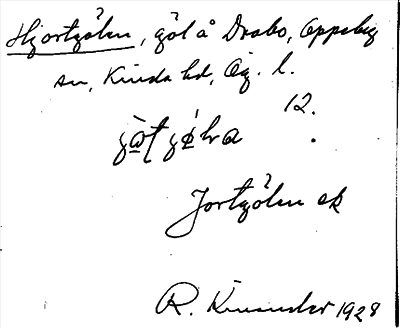 Hjortgölen, göl å Drabo, Oppeby
sn, Kinda hd, Ög. l.
12.
Jortgölen ek
R. Kinander 1928